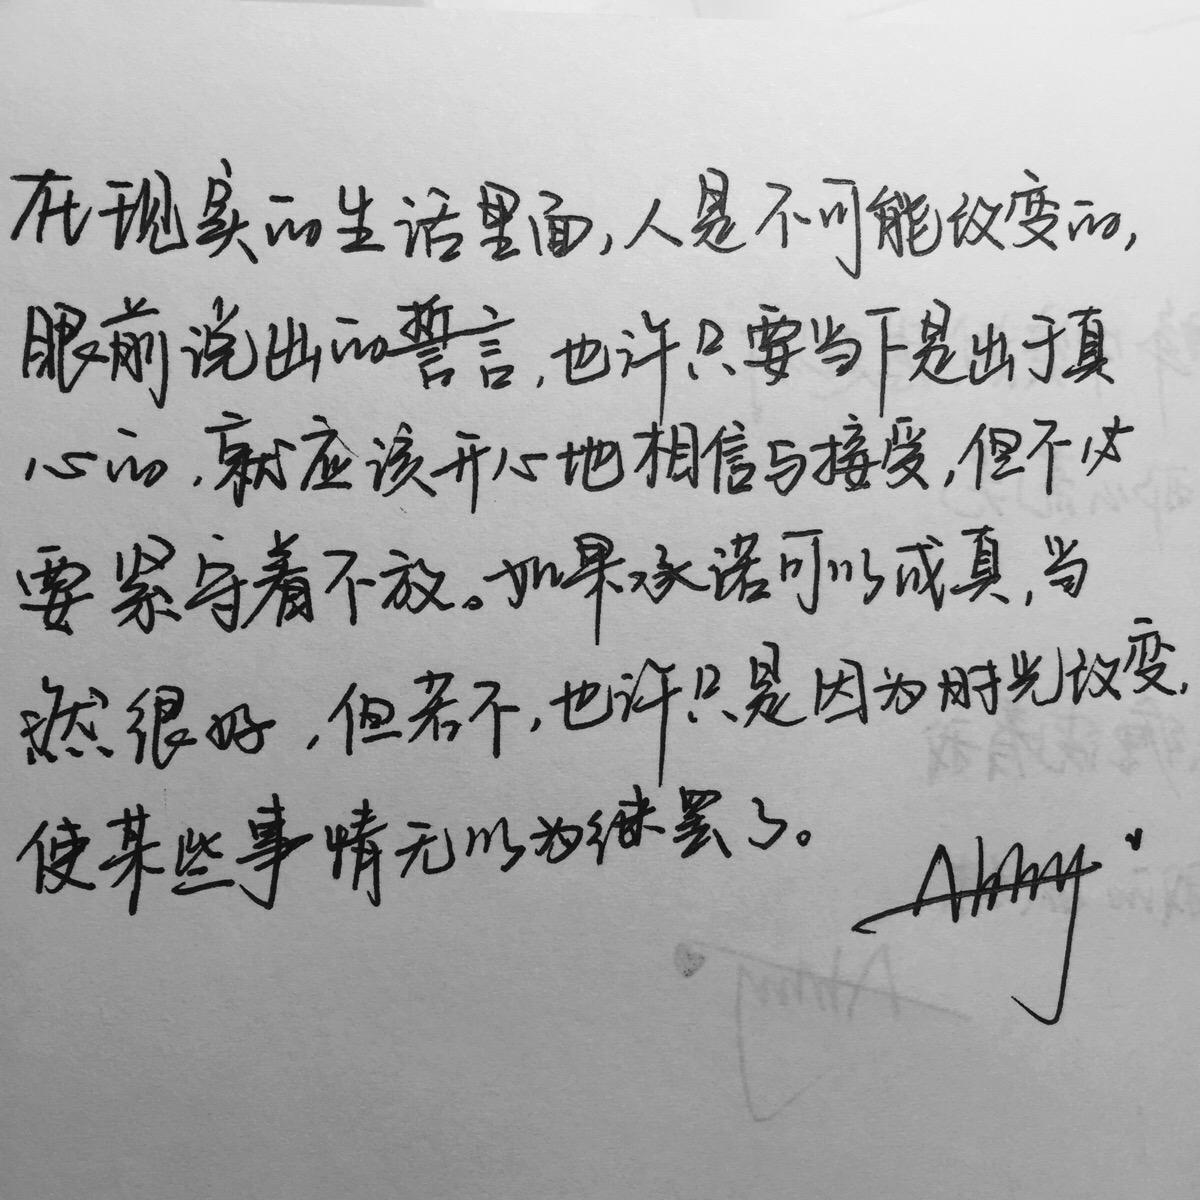 在现实的生活里面,人是不可能改变的,
眼前说出的誓言,也许只要当下是出于真
心的,就应该开心地相信与接受,但不必
要紧守着不放。如果承诺可以成真,当
然很好,但若不,也许只是因为时光改变,
使某些事情无以为继罢了。
Abby